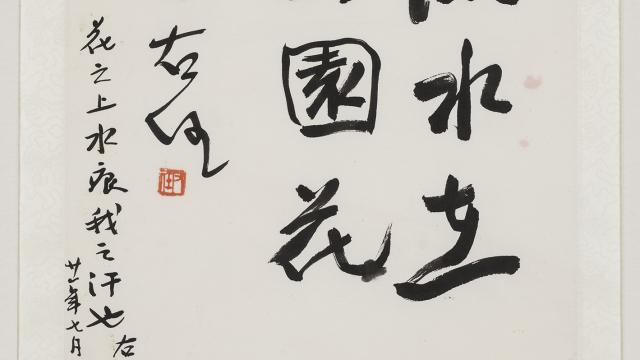 水在
園花
右任
花之上水痕我之汗也右
廿一年七月